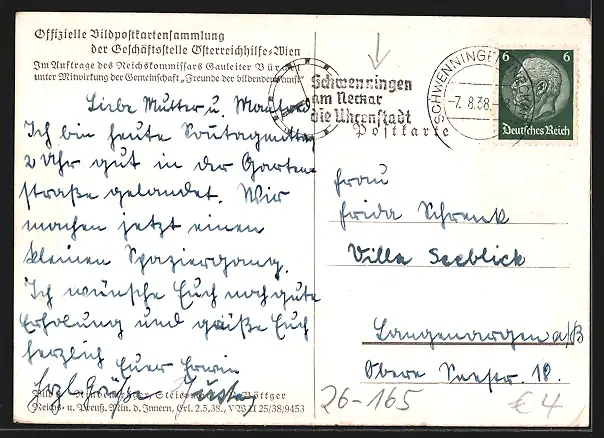 Offizielle Bildpostkartensammlung
der Geschäftsstelle Österreichhilfe-Wien
Im Auftrage des Reichskommissars Gauleiter Bür
unter Mitwirkung der Gemeinschaft „Freunde der bildenden Kunst“
Liebe Mutter u. Manfred.
Ich bin heute Sonntagmittag
2 Uhr gut in der Garten-
straße gelandet. Wir
machen jetzt einen
kleinen Spaziergang.
Ich wünsche Euch noch gute
Erholung und grüße Euch
herzlich Euer Erwin
Herzl. Grüße
Böttger
(Reichs- u. Preuß. Min. d. Innern, Erl. 2.5.38., V W II 25/38/9453
Schwenningen
am Neckar
die Uhrenstadt
Postkarte
SCHWENNINGEN (NECKAR)
-7. 8.38.
6 6
Deutsches Reich
Frau
Frida Schrenk
Villa Seeblick
Langenargen a/B
Obere Seestr. 18.
26-165
€4